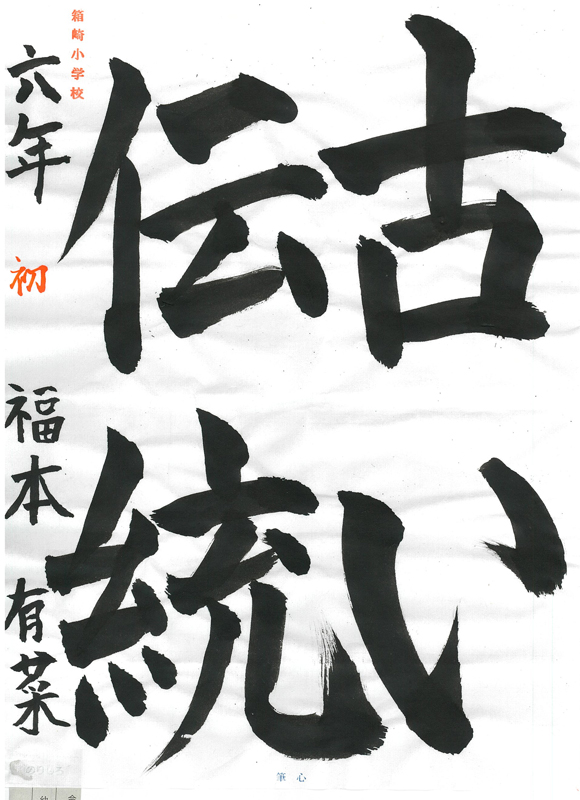 古い
伝統
箱崎小学校
六年 初 福本 有菜
筆心